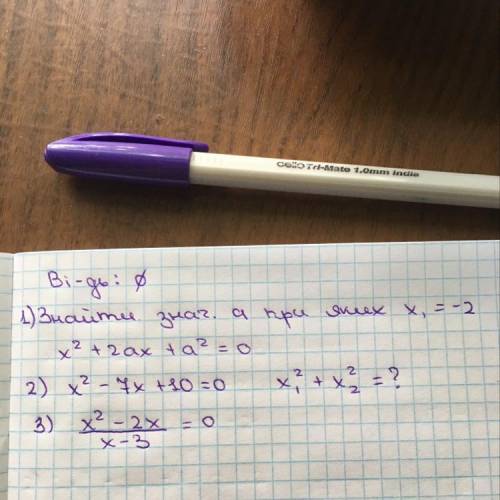 Cello Tri-Mate 1.0mm India
Ві-дь: ∅
1) Знайти знач. а при яких x₁ = -2
x² + 2ax + a² = 0
2) x² - 7x + 10 = 0 x₁² + x₂² = ?
3) (x² - 2x)/(x - 3) = 0